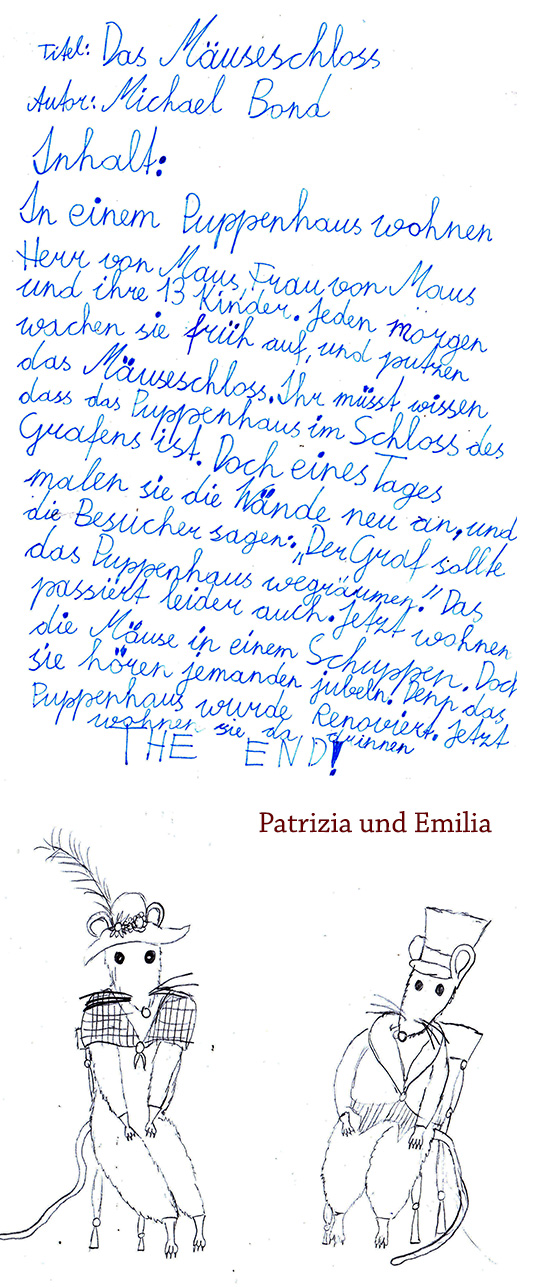 Titel: Das Mäuseschloss
Autor: Michael Bond
Inhalt:
In einem Puppenhaus wohnen
Herr von Maus, Frau von Maus
und ihre 13 Kinder. Jeden morgen
wachen sie früh auf, und putzen
das Mäuseschloss. Ihr müsst wissen
dass das Puppenhaus im Schloss des
Grafens ist. Doch eines Tages
malen sie die Wände neu an, und
die Besucher sagen: „Der Graf sollte
das Puppenhaus wegräumen." Das
passiert leider auch. Jetzt wohnen
die Mäuse in einem Schuppen. Doch
sie hören jemanden jubeln. Denn das
Puppenhaus wurde Renoviert. Jetzt
wohnen sie da drinnen
THE END!
Patrizia und Emilia